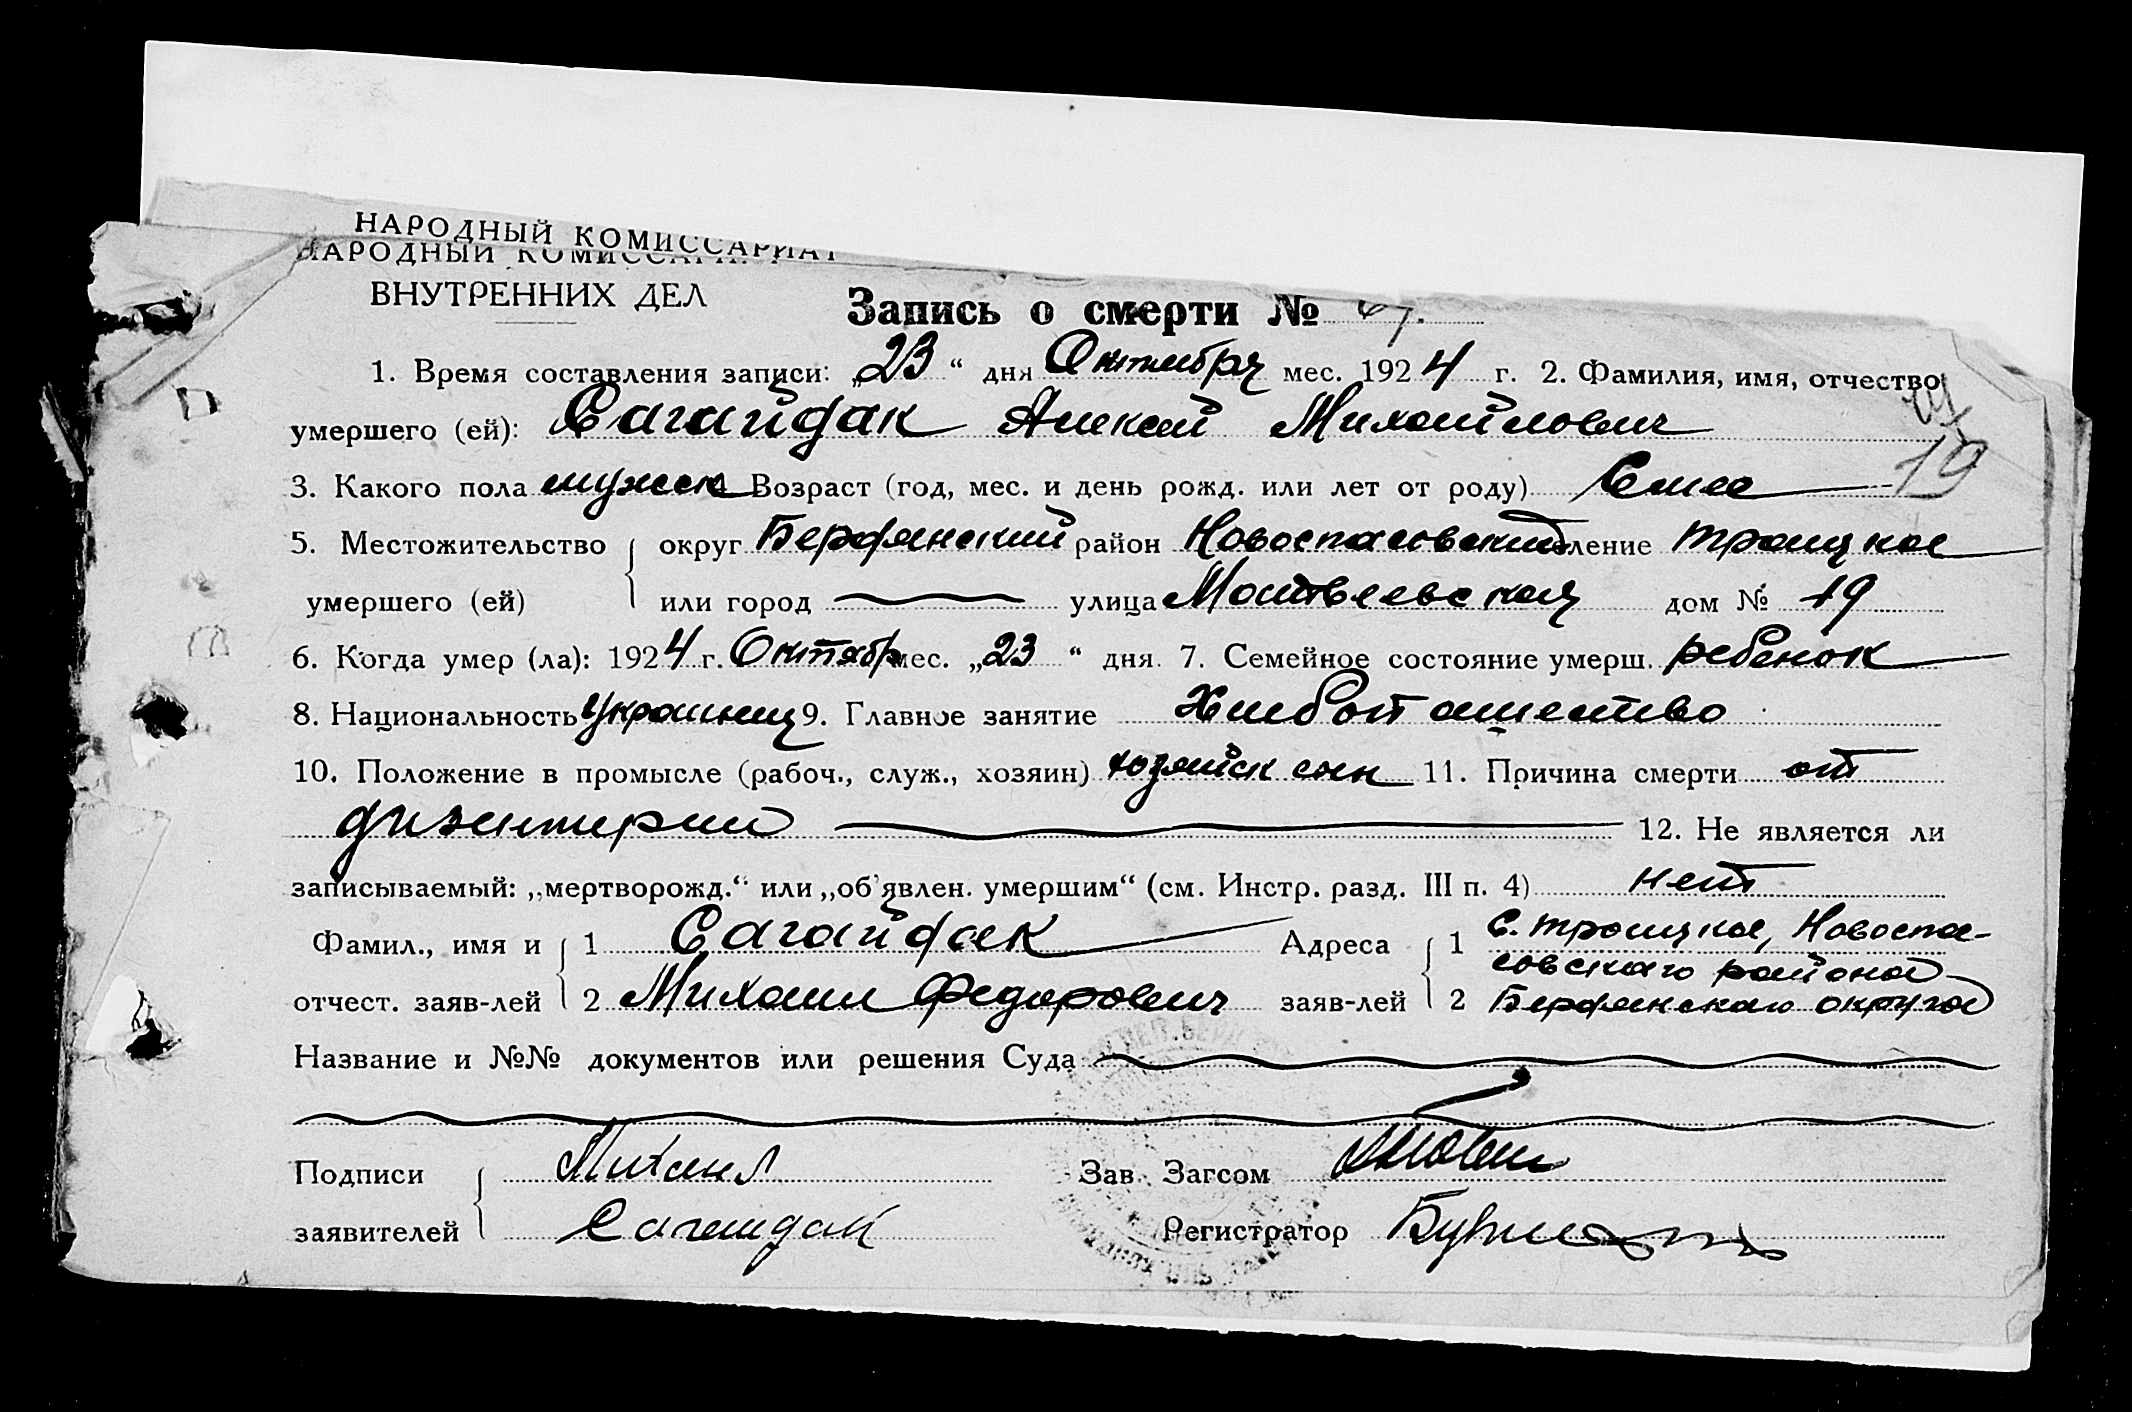 НАРОДНЫЙ КОМИССАРИАТ
НАРОДНЫЙ КОМИССАРИАТ
ВНУТРЕННИХ ДЕЛ
Запись о смерти №
1. Время составления записи: „23“ дня Октября мес. 1924 г. 2. Фамилия, имя, отчество
умершего (ей): Сагайдак Алексей Михайлович
19
3. Какого пола мужск Возраст (год, мес. и день рожд. или лет от роду)
5. Местожительство округ Бердянский район Новоспасовский ление Троицкое
умершего (ей) или город улица Матвеевская дом № 19
6. Когда умер (ла): 1924 г. Октябр мес. „23“ дня. 7. Семейное состояние умерш. ребенок
8. Национальность Украинец 9. Главное занятие Хлебопашество
10. Положение в промысле (рабоч., служ., хозяин) хозяйск сын 11. Причина смерти от
дизентерии 12. Не является ли
записываемый: „мертворожд.“ или „об'явлен. умершим“ (см. Инстр. разд. III п. 4) нет
Фамил., имя и 1 Сагайдак Адреса 1 с. Троицкое, Новоспа-
совскаго района
отчест. заяв-лей 2 Михаил Федорович заяв-лей 2 Бердянскаго округа
Название и №№ документов или решения Суда
Подписи Михаил Зав. Загсом
заявителей Сагайдак Регистратор